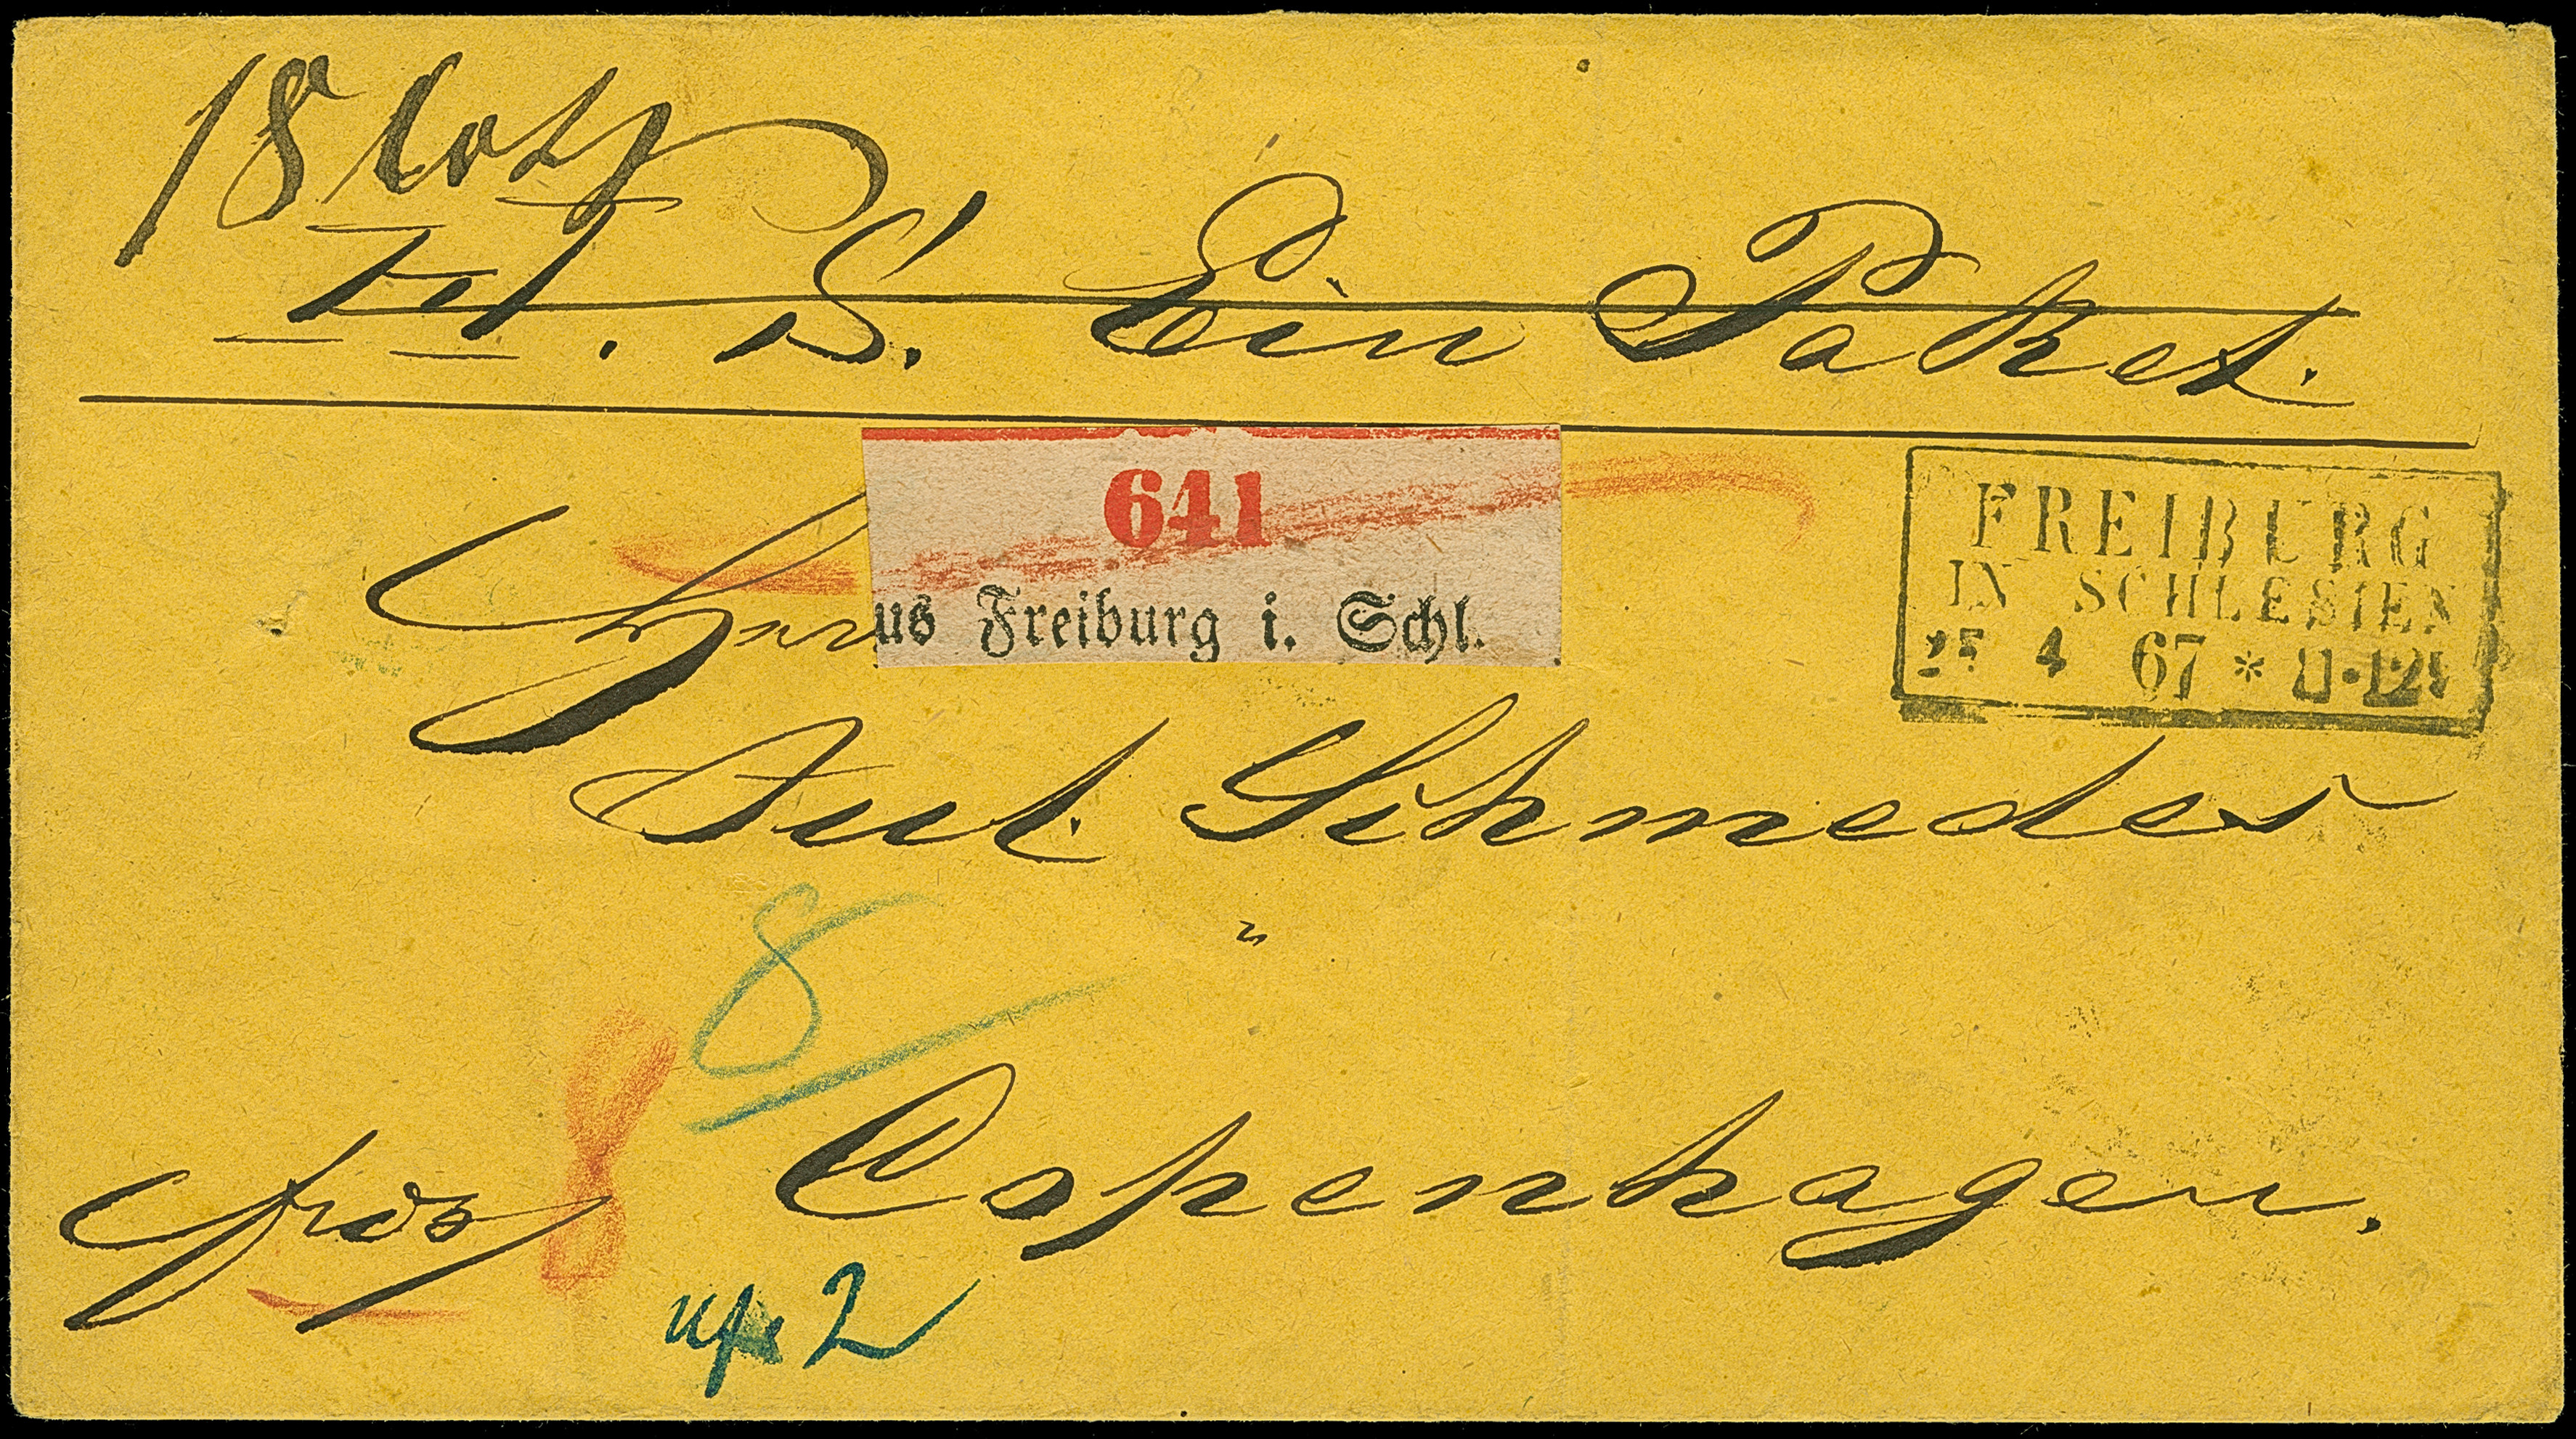 18 Loth
S. Ein Paket.
641
us Freiburg i. Schl.
FREIBURG
IN SCHLESIEN
25 4 67 * 11-12
Jul. Schmedes
8
Copenhagen.
8
2